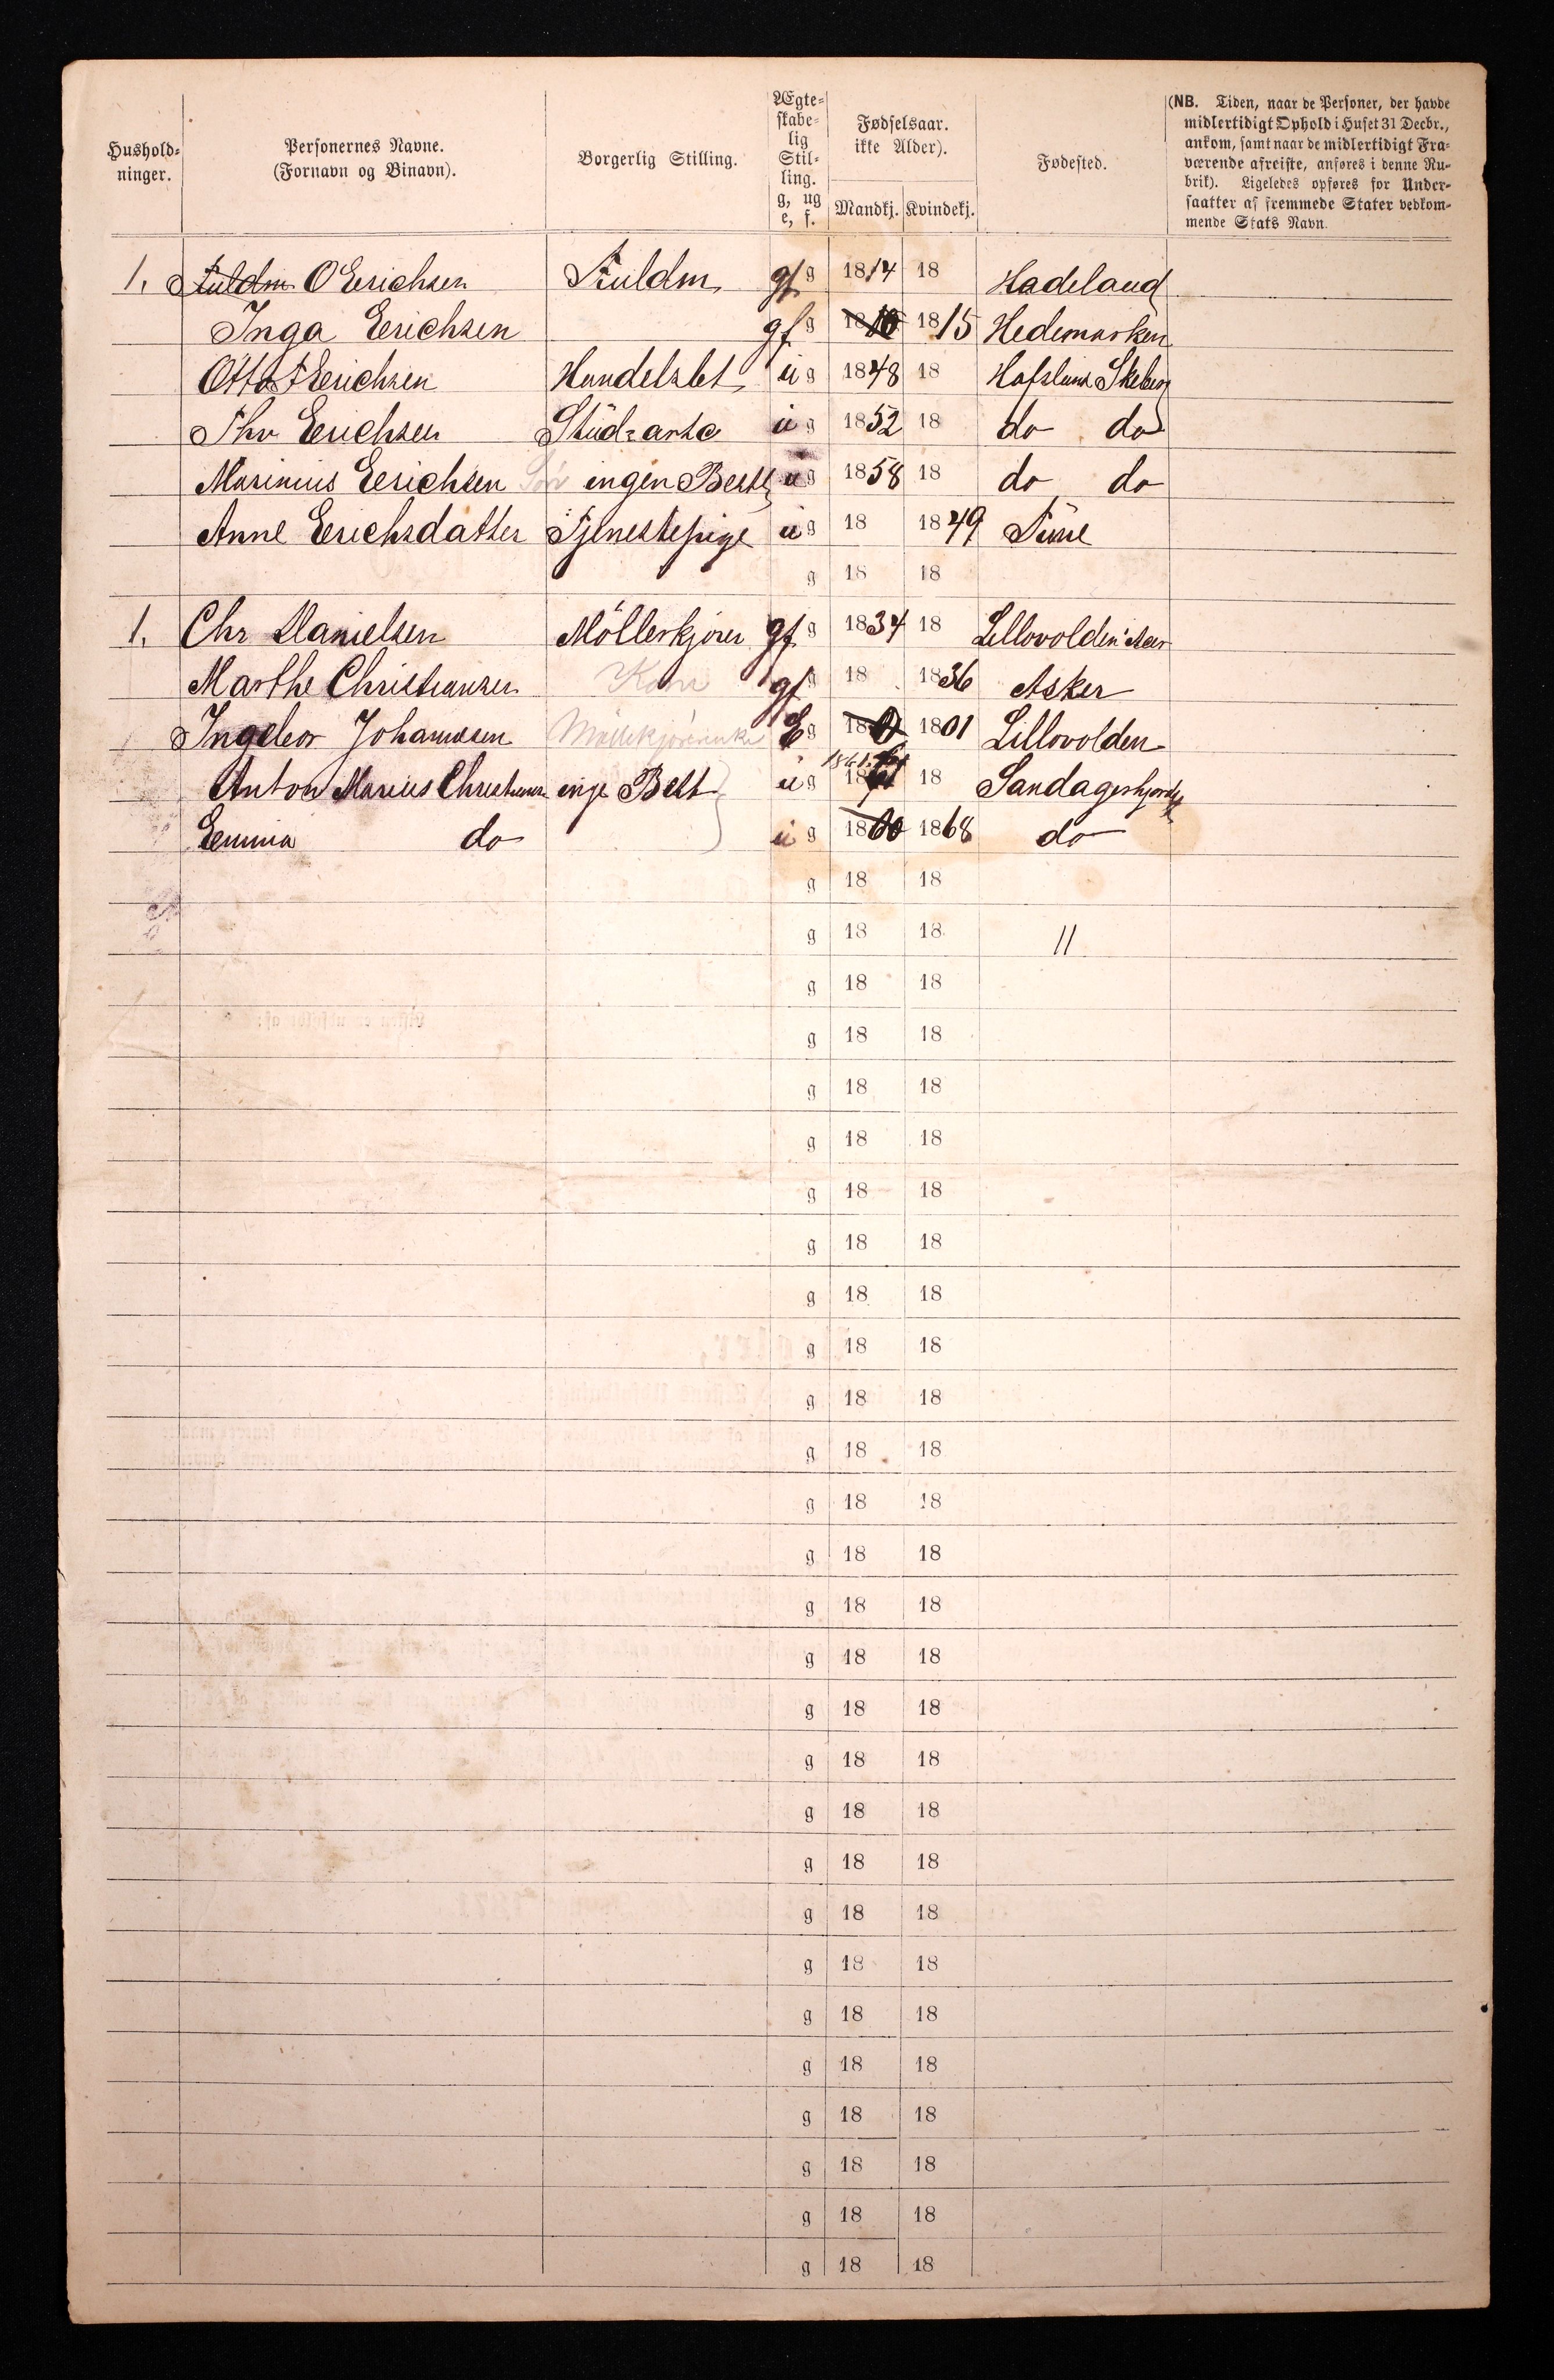 Hushold-
ninger.
Personernes Navne.
(Fornavn og Binavn).
Borgerlig Stilling.
Ægte-
skabe-
lig
Stil-
ling.
g, ug
e, f.
Fødselsaar.
ikke Alder).
Mandkj. Kvindekj.
Fødested.
(NB. Tiden, naar de Personer, der havde
midlertidigt Ophold i Huset 31 Decbr.,
ankom, samt naar de midlertidigt Fra-
værende afreiste, anføres i denne Ru-
brik). Ligeledes opføres for Under-
saatter af fremmede Stater vedkom-
mende Stats Navn.
1. Fuldm O Erichsen Fuldm gf g 1814 18 Hadeland
Inga Erichsen gf g 18 1815 Hedemarken
Otto F Erichsen Handelsbet ü g 1848 18 Hafslund Skeberg
Thv Erichsen Stüd: artc ü g 1852 18 do do
Marinius Erichsen Søn ingen Besk ü g 1858 18 do do
Anne Erichsdatter Tjenestepige ü g 18 1849 Füne
g 18 18
1. Chr Danielsen Möllerkjörer gf g 1834 18 Lillovolden Aker
Marthe Christiansen Kone gf g 18 1836 Asker
Ingebor Johannesen Møllekjørerenke E g 18 1801 Lillovolden
1861
Anton Marius Christians inge Besk ü g 1861 18 Sandagerhjordet
Emma do ü g 1868 do
g 18 18
g 18 18 "
g 18 18
g 18 18
g 18 18
g 18 18
g 18 18
g 18 18
g 18 18
g 18 18
g 18 18
g 18 18
g 18 18
g 18 18
g 18 18
g 18 18
g 18 18
g 18 18
g 18 18
g 18 18
g 18 18
g 18 18
g 18 18
g 18 18
g 18 18
g 18 18
g 18 18
g 18 18